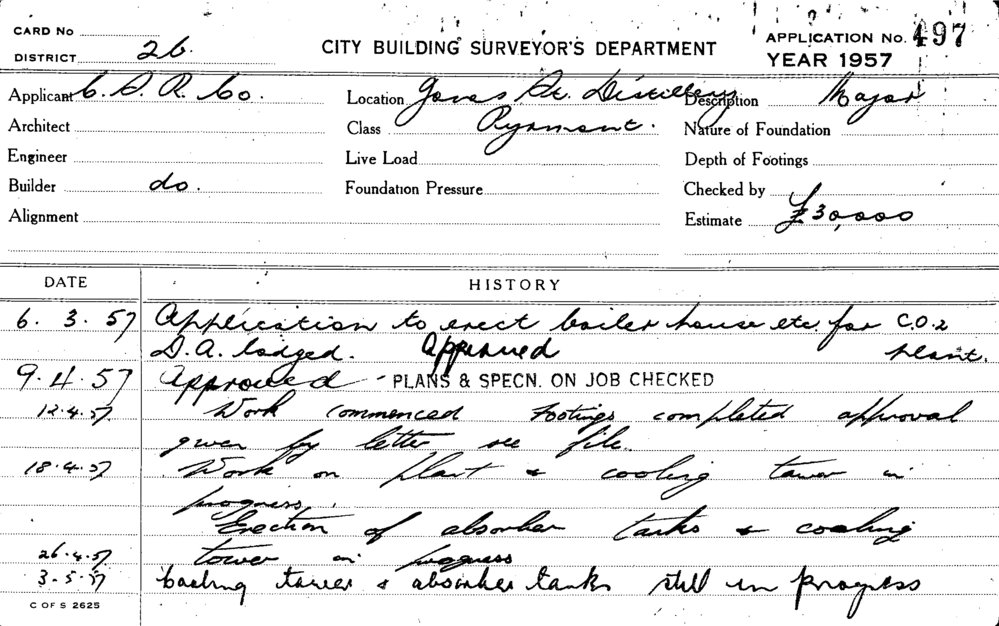 CARD No
DISTRICT 26.
CITY BUILDING SURVEYOR'S DEPARTMENT
APPLICATION No. 497
YEAR 1957
Applicant C. S. R. Co. Location Jones St. Distillery Description Major
Architect Class Pyrmont. Nature of Foundation
Engineer Live Load Depth of Footings
Builder do. Foundation Pressure Checked by
Alignment Estimate £30,000
DATE HISTORY
6. 3. 57 Application to erect boiler house etc. for C.O.2
D.A. lodged. Approved plant.
9. 4. 57 Approved - PLANS & SPECN. ON JOB CHECKED
12.4.57 Work commenced footings completed approval
given by letter see file.
18.4.57 Work on plant & cooling tower in
progress.
Erection of absorber tanks & cooling
26.4.57 tower in progress
3.5.57 Cooling tower & absorber tanks still in progress
C OF S 2625